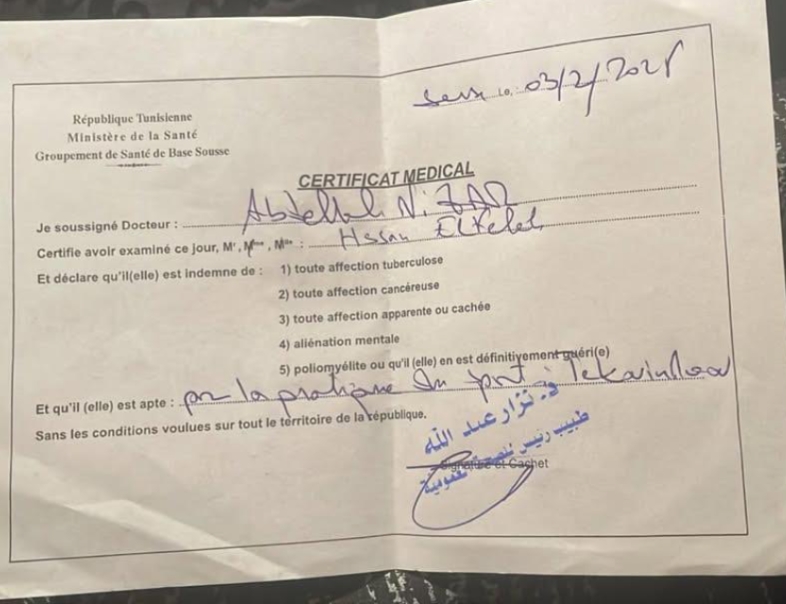 03/2/2025
République Tunisienne
Ministère de la Santé
Groupement de Santé de Base Sousse
CERTIFICAT MEDICAL
Je soussigné Docteur : Abdellah Nizar
Certifie avoir examiné ce jour, Mr, Mme, Mlle : Hssan
Et déclare qu'il(elle) est indemne de : 1) toute affection tuberculose
2) toute affection cancéreuse
3) toute affection apparente ou cachée
4) aliénation mentale
5) poliomyélite ou qu'il (elle) en est définitivement guéri(e)
Et qu'il (elle) est apte : la pratique du
Sans les conditions voulues sur tout le territoire de la république.
د. نزار عبد الله
Signature et Cachet
طبيب رئيس للصحة العمومية